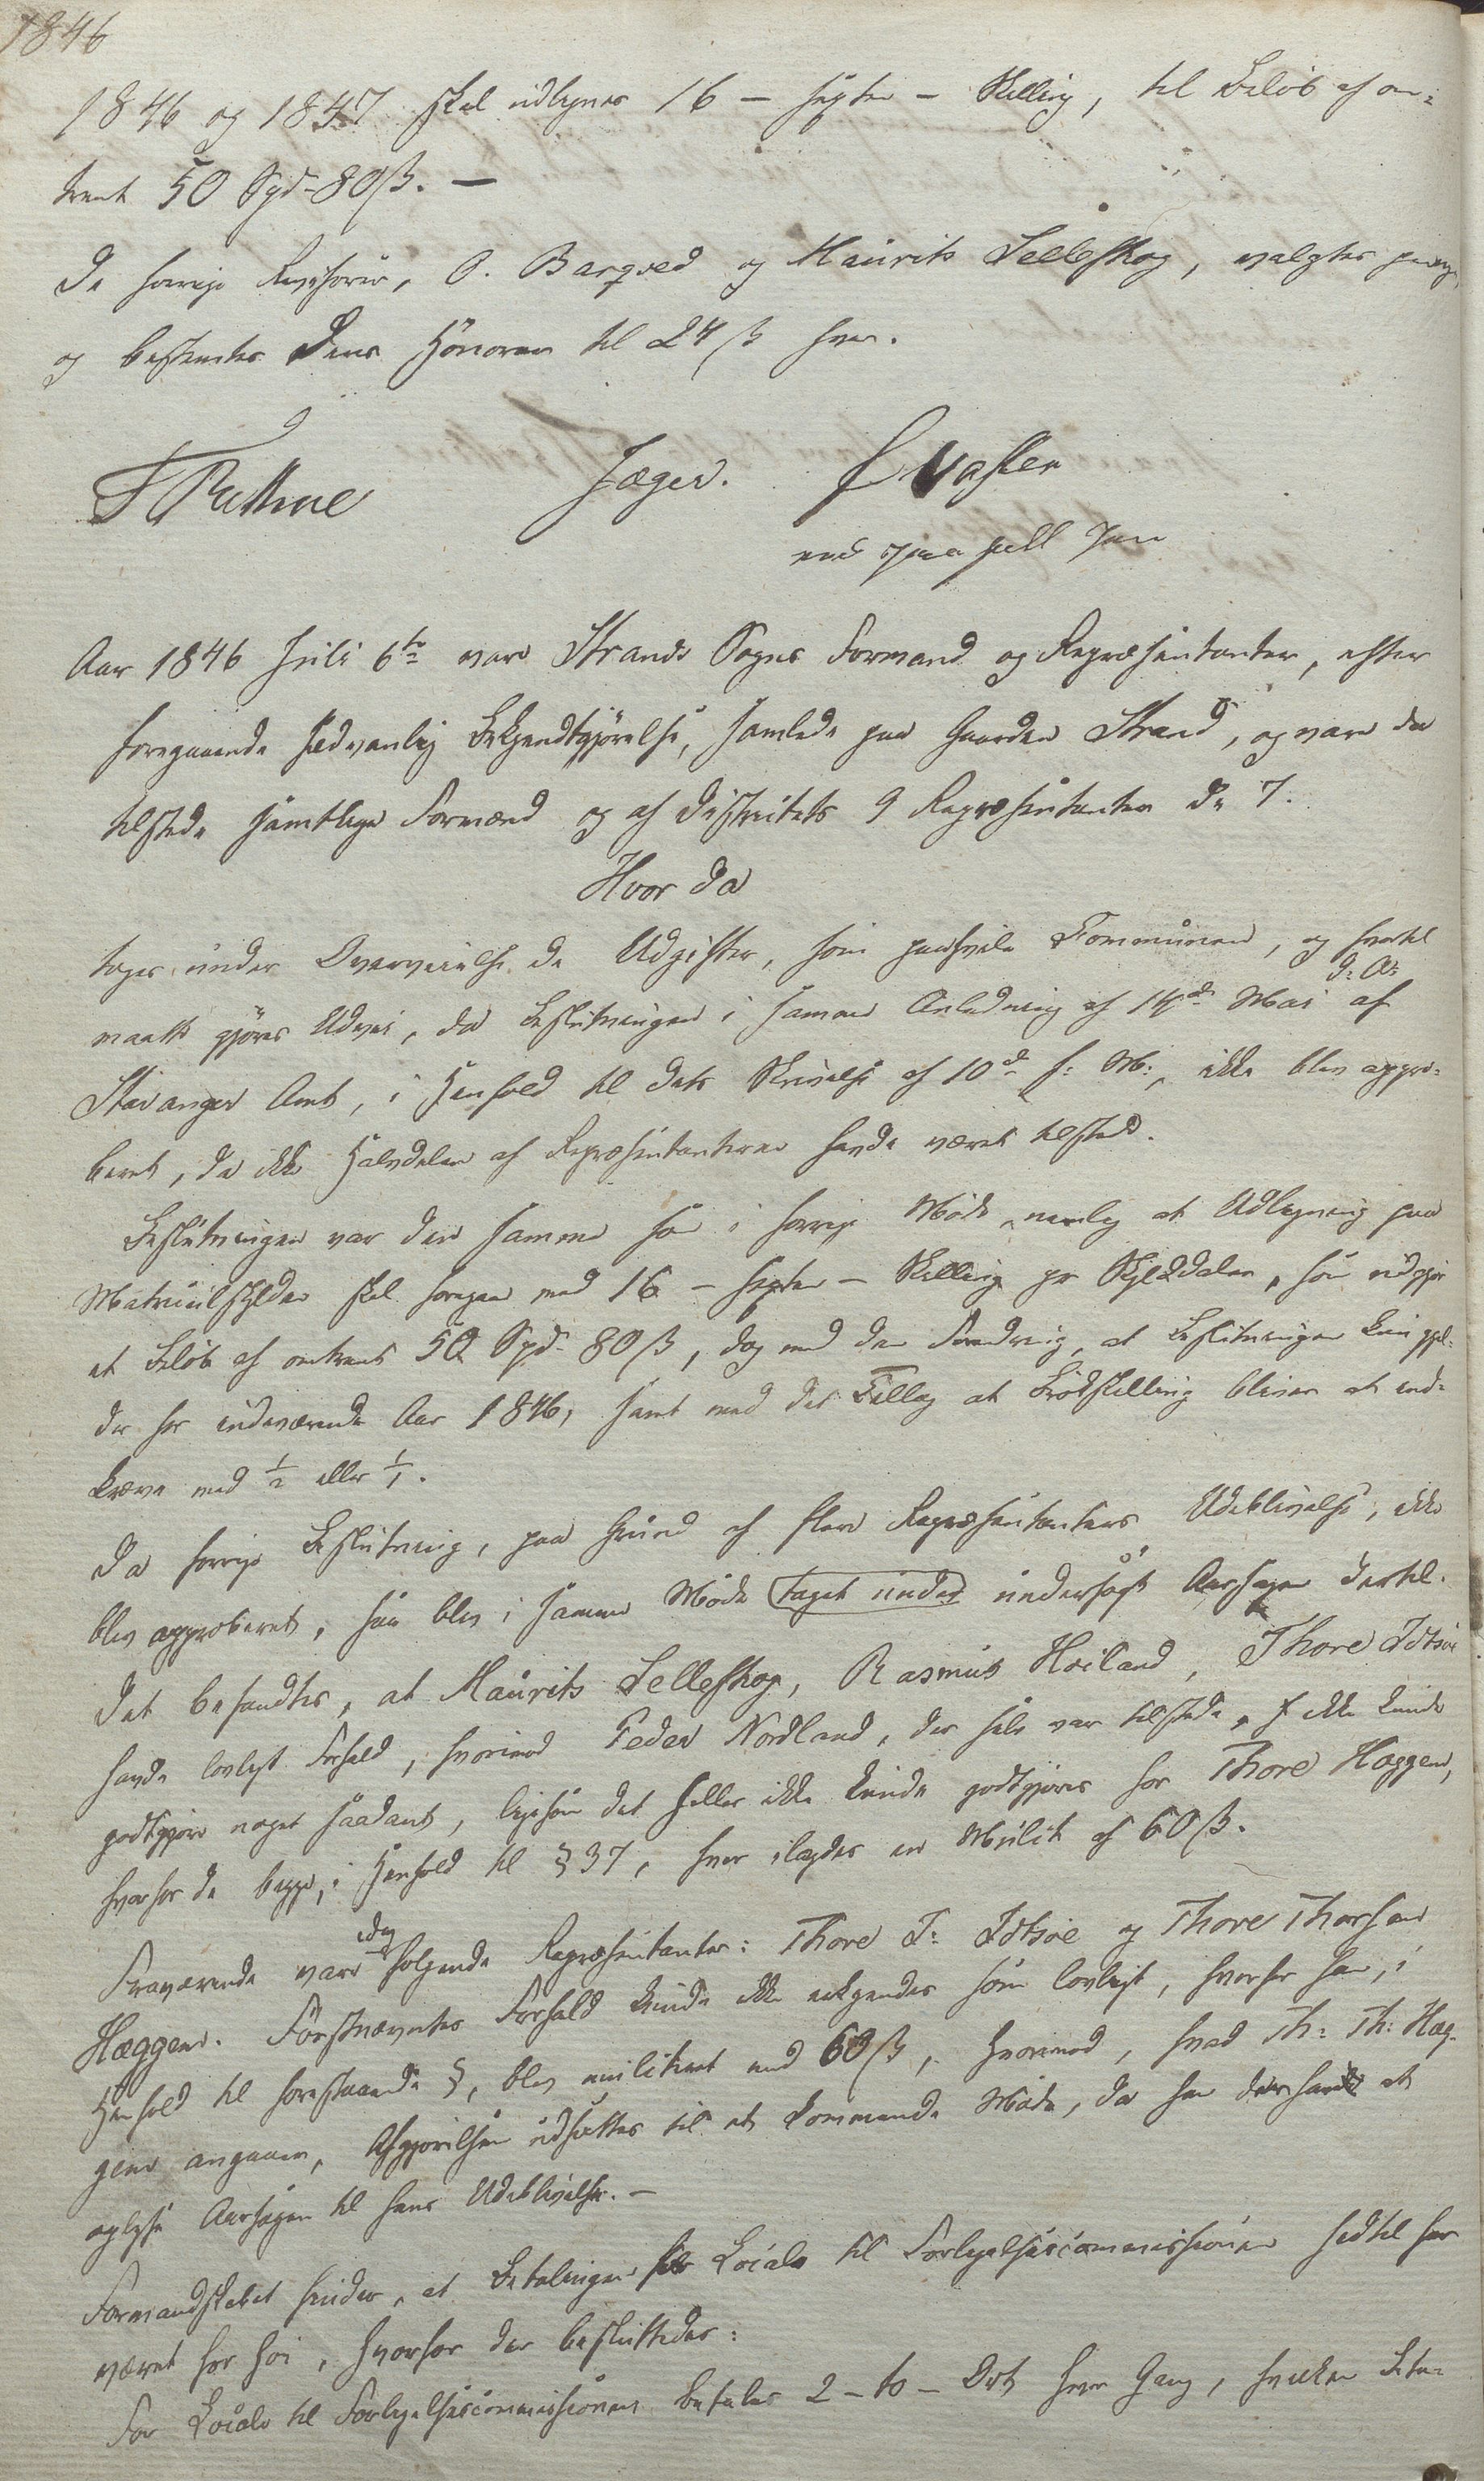 1846
1846 og 1847 skal udlignes 16 – sexten – Skilling, til Beløb af om=
trent 50 Spd. 80 ß. —
De forrige Revisorer, O. Barqved og Maurits Selleskog, valgtes paany,
og bestemtes deres Honorar til 24 ß hver.
Jæger. Vasker
med paa hold Pen
Aar 1846 Juli 6te vare Strands Sogns Formænd og Repræsentanter, efter
foregaaende sædvanlig Bekjendtgjørelse, samlede paa Gaarden Strand, og vare da
tilstede samtlige Formænd og af Distriktets 9 Repræsentanter de 7.
Hvor da
toges under Overveielse de Udgifter, som paahvile Communen, og hvortil
d: A:
maatte gjøres Udvei, da Beslutningen i samme Anledning af 14de Mai af
Stavanger Amt, i Henhold til dets Skrivelse af 10de f: M:, ikke blev appro=
beret, da ikke Halvdelen af Repræsentanterne havde været tilstede.
Beslutningen var den samme som i forrige Møde, nemlig at Udligning paa
Matriculskylden skal foregaa med 16 – sexten – Skilling pr Skylddaler, som udgjør
et Beløb af omtrent 50 Spd. 80 ß, dog med den Forandring, at Beslutningen kun gjel=
der for indeværende Aar 1846, samt med det Tillæg at Brødskilling bliver at ind=
kræve med ½ eller 1/1.
Da forrige Beslutning, paa Grund af flere Repræsentanters Udeblivelse, ikke
blev approberet, saa blev i samme Møde taget under undersøgt Aarsagen dertil.
Det befandtes, at Maurits Selleskog, Rasmus Heiland, Thore Idtsøe
havde lovligt Forfald, hvorimod Peder Nordland, der selv var tilstede, ikke kunde
godtgjøre noget saadant, ligesom det heller ikke kunde godtgjøres for Thore Heggen,
hvorfor de begge, i Henhold til § 37, hver ilagdes en Mulct af 60 ß.
idag
Fraværende vare følgende Repræsentanter: Thore T: Idtsøe og Thore Thorsen
Hæggen. Førstnævntes Forfald kunde ikke erkjendes som lovligt, hvorfor han, i
Henhold til forestaaende §, blev mulcteret med 60 ß, hvorimod, hvad Th: Th: Hæg=
gene angaaer, Afgjørelsen udsættes til et kommende Møde, da han har at
oplyse Aarsagen til hans Udeblivelse. —
Formandskabet finder, at Betalingen for Locale til Forligelsescommissionen hidtil har
været for høi, hvorfor der besluttedes:
For Locale til Forligelsescommissionen betales 2 – to – Ort hver Gang, hvilken Beta=